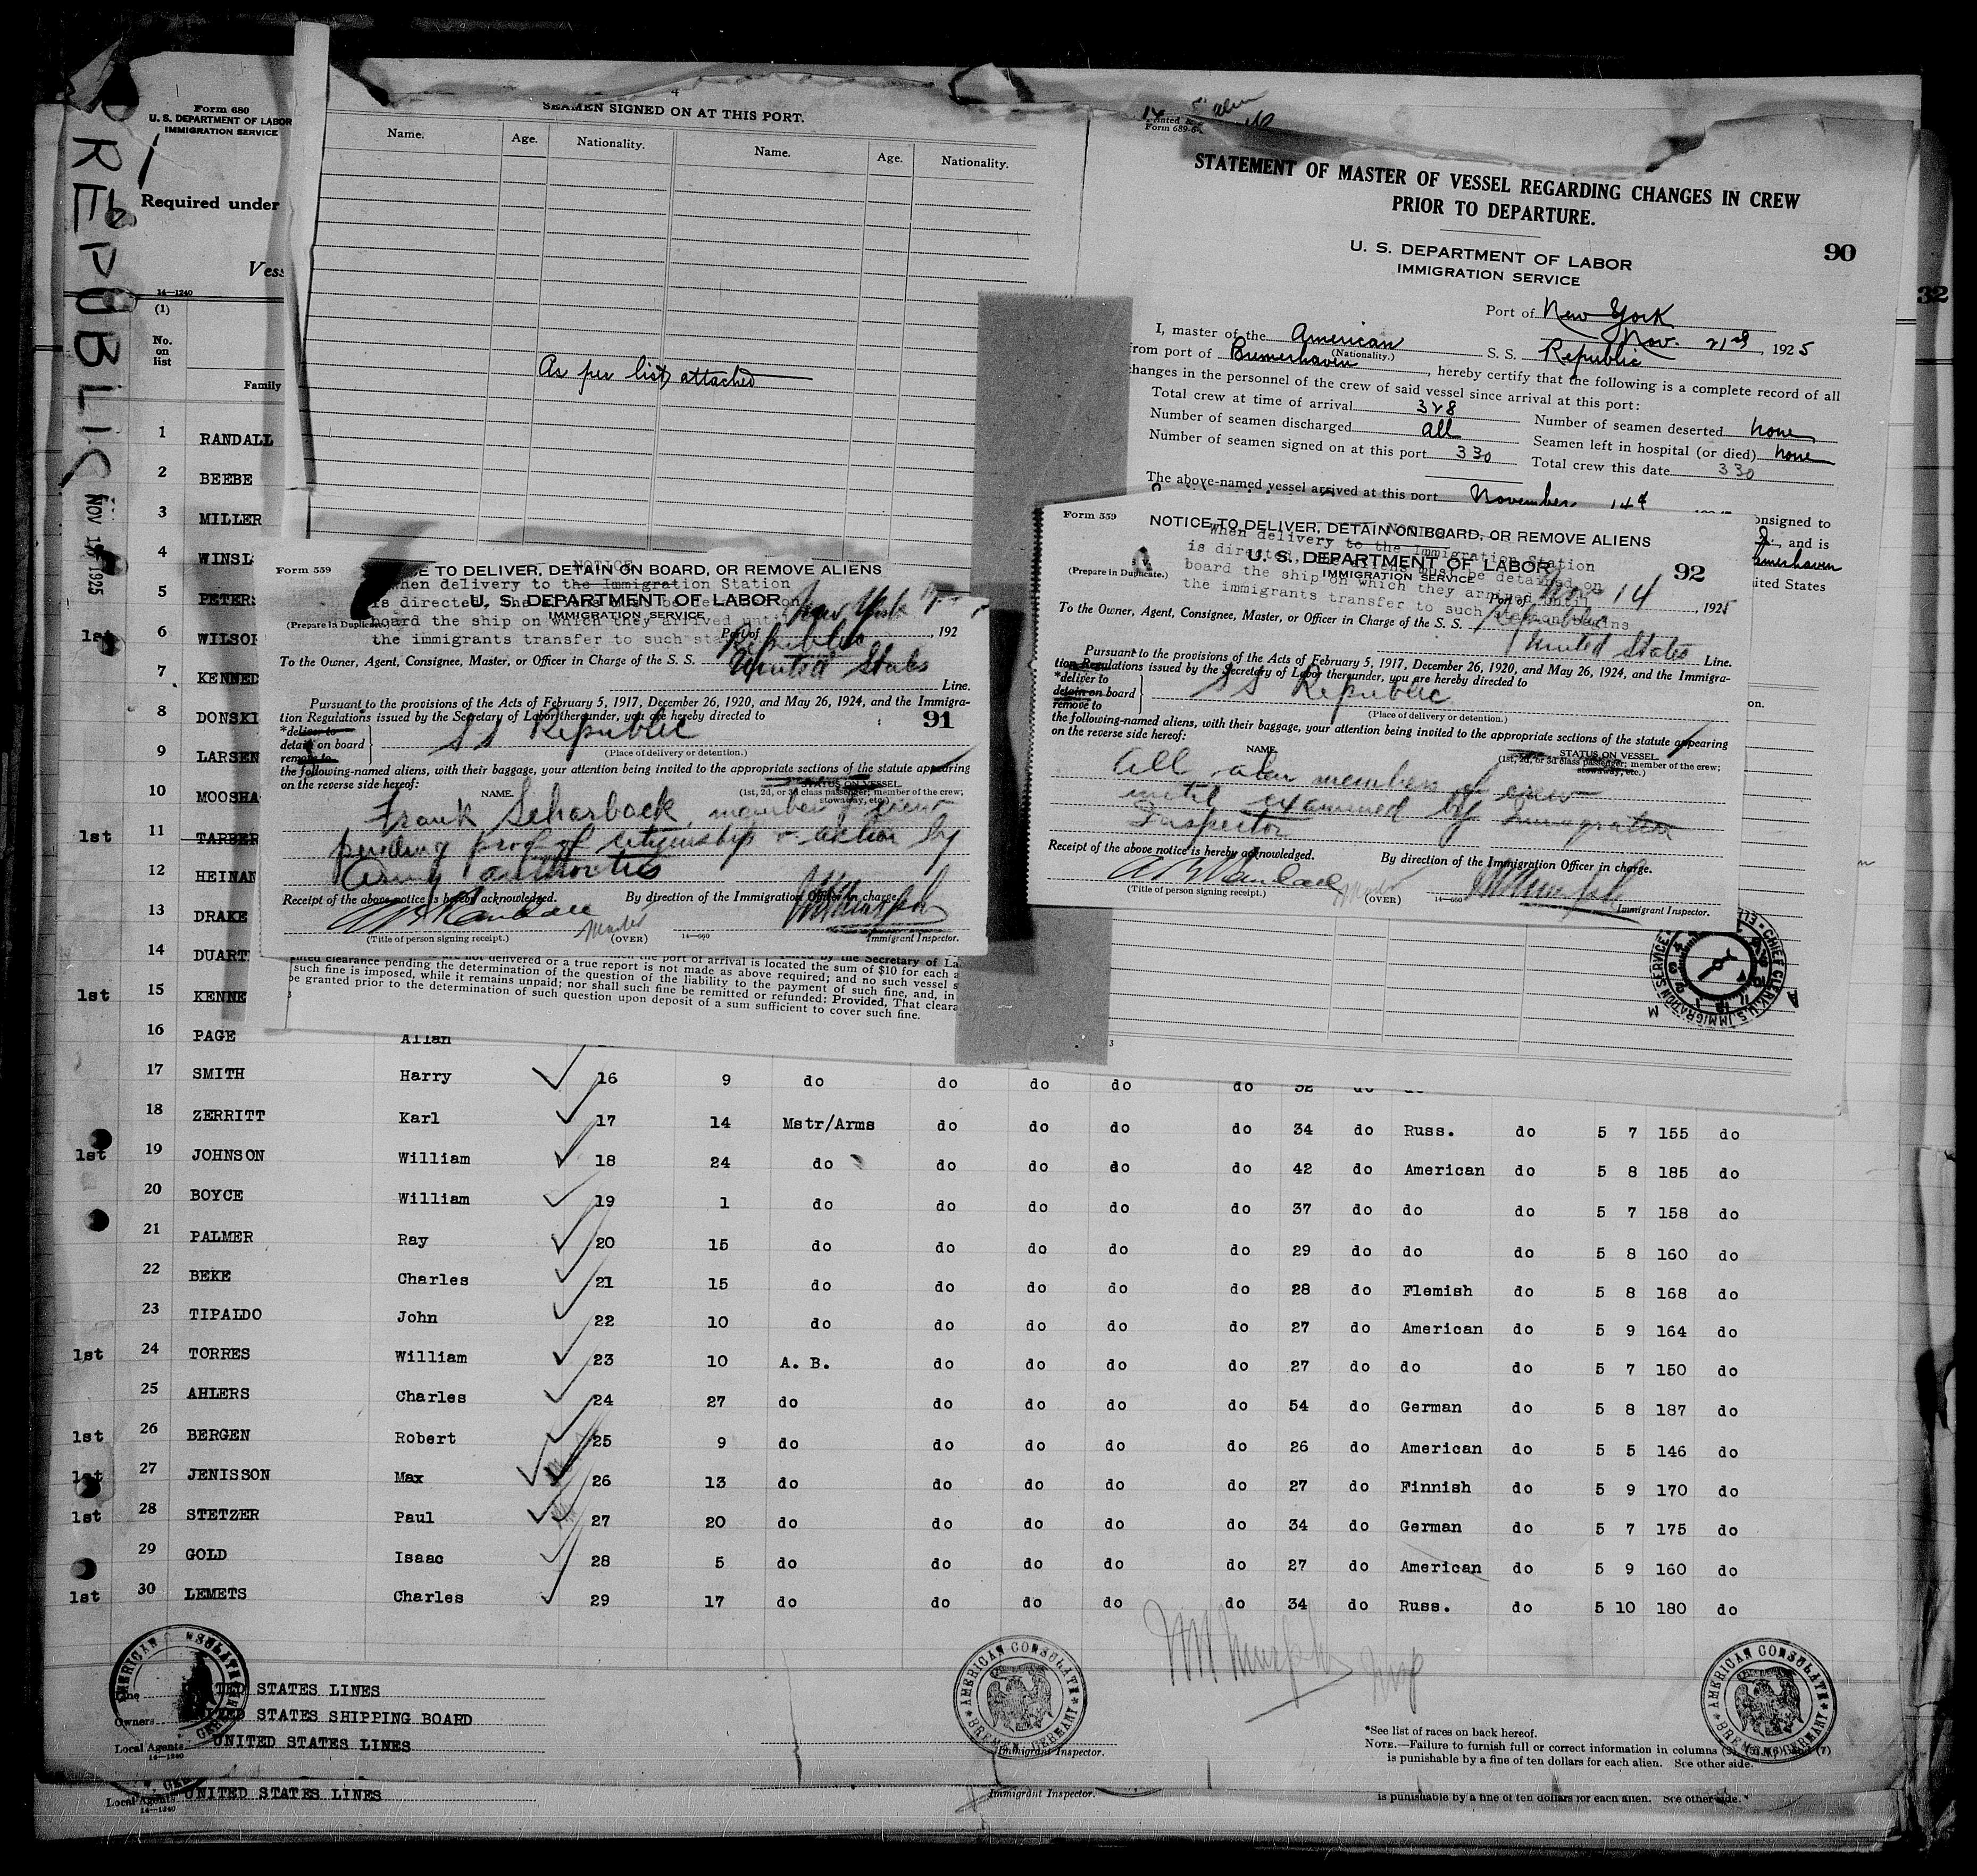 REPUBLIC
NOV 1925
Form 680
U. S. DEPARTMENT OF LABOR
IMMIGRATION SERVICE
Required under
14—1240
(1)
No. on list
Family
4
SEAMEN SIGNED ON AT THIS PORT.
Name. Age. Nationality. Name. Age. Nationality.
As per list attached
Form 689-
STATEMENT OF MASTER OF VESSEL REGARDING CHANGES IN CREW
PRIOR TO DEPARTURE.
U. S. DEPARTMENT OF LABOR
IMMIGRATION SERVICE
90
32
Port of New York
Nov. 21st, 1925
I, master of the American S. S. Republic
(Nationality.)
from port of Bremerhaven, hereby certify that the following is a complete record of all
changes in the personnel of the crew of said vessel since arrival at this port:
Total crew at time of arrival 328
Number of seamen discharged all Number of seamen deserted none
Number of seamen signed on at this port 330 Seamen left in hospital (or died) none
Total crew this date 330
The above-named vessel arrived at this port November 14th
consigned to
and is
Bremerhaven
United States
Form 559
NOTICE
CE TO DELIVER, DETAIN ON BOARD, OR REMOVE ALIENS
When delivery to the Immigration Station
is directed, the
U. S. DEPARTMENT OF LABOR
IMMIGRATION SERVICE
board the ship on which they arrived until
(Prepare in Duplicate.)
the immigrants transfer to such
Port of New York, 192
To the Owner, Agent, Consignee, Master, or Officer in Charge of the S. S. Republic
United States Line.
Pursuant to the provisions of the Acts of February 5, 1917, December 26, 1920, and May 26, 1924, and the Immigra-
tion Regulations issued by the Secretary of Labor thereunder, you are hereby directed to
91
*deliver to
detain on board
remove to
S S Republic
(Place of delivery or detention.)
the following-named aliens, with their baggage, your attention being invited to the appropriate sections of the statute appearing
on the reverse side hereof:
NAME. STATUS ON VESSEL
(1st, 2d, or 3d class passenger; member of the crew;
stowaway, etc.)
Frank Scharback, member of crew
pending proof of citizenship or action by
Army authorities
Receipt of the above notice is hereby acknowledged. By direction of the Immigration Officer in charge.
A B Randall Master
(Title of person signing receipt.) (OVER) 14—660 Immigrant Inspector.
Form 559
NOTICE TO DELIVER, DETAIN ON BOARD, OR REMOVE ALIENS
When delivery to the Immigration Station
is directed, the aliens must be detained on
U. S. DEPARTMENT OF LABOR
92
IMMIGRATION SERVICE
(Prepare in Duplicate.)
board the ship on which they arrived until
the immigrants transfer to such station begins
Port of Nov 14, 1925
To the Owner, Agent, Consignee, Master, or Officer in Charge of the S. S. Republic
United States Line.
Pursuant to the provisions of the Acts of February 5, 1917, December 26, 1920, and May 26, 1924, and the Immigra-
tion Regulations issued by the Secretary of Labor thereunder, you are hereby directed to
*deliver to
detain on board
remove to
S S Republic
(Place of delivery or detention.)
the following-named aliens, with their baggage, your attention being invited to the appropriate sections of the statute appearing
on the reverse side hereof:
NAME. STATUS ON VESSEL
(1st, 2d, or 3d class passenger; member of the crew;
stowaway, etc.)
All alien members of crew
until examined by Immigration
Inspector
Receipt of the above notice is hereby acknowledged. By direction of the Immigration Officer in charge.
A B Randall Master
(Title of person signing receipt.) (OVER) 14—660 Immigrant Inspector.
CHIEF CLERK U.S. IMMIGRATION SERVICE
clearance pending the determination of the question of the liability to the payment of such fine, and, in
such fine is imposed, while it remains unpaid; nor shall such fine be remitted or refunded: Provided, That cleara
be granted prior to the determination of such question upon deposit of a sum sufficient to cover such fine.
1 RANDALL
2 BEEBE
3 MILLER
4 WINSL
5 PETERS
1st 6 WILSO
7 KENNED
8 DONSKI
9 LARSEN
10 MOOSHA
1st 11 TARBER
12 HEINAN
13 DRAKE
14 DUART
1st 15 KENNE
16 PAGE Allan
17 SMITH Harry 16 9 do do do do do 32 do do
18 ZERRITT Karl 17 14 Mstr/Arms do do do do 34 do Russ. do 5 7 155 do
1st 19 JOHNSON William 18 24 do do do do do 42 do American do 5 8 185 do
20 BOYCE William 19 1 do do do do do 37 do do do 5 7 158 do
21 PALMER Ray 20 15 do do do do do 29 do do do 5 8 160 do
22 BEKE Charles 21 15 do do do do do 28 do Flemish do 5 8 168 do
23 TIPALDO John 22 10 do do do do do 27 do American do 5 9 164 do
1st 24 TORRES William 23 10 A. B. do do do do 27 do do do 5 7 150 do
25 AHLERS Charles 24 27 do do do do do 54 do German do 5 8 187 do
1st 26 BERGEN Robert 25 9 do do do do do 26 do American do 5 5 146 do
1st 27 JENISSON Max 26 13 do do do do do 27 do Finnish do 5 9 170 do
1st 28 STETZER Paul 27 20 do do do do do 34 do German do 5 7 175 do
29 GOLD Isaac 28 5 do do do do do 27 do American do 5 9 160 do
1st 30 LEMETS Charles 29 17 do do do do do 34 do Russ. do 5 10 180 do
AMERICAN CONSULATE BREMEN, GERMANY
Line UNITED STATES LINES
Owners UNITED STATES SHIPPING BOARD
Local Agents UNITED STATES LINES
14—1240
Immigrant Inspector.
*See list of races on back hereof.
NOTE.—Failure to furnish full or correct information in columns (2), (5), (6), and (7)
is punishable by a fine of ten dollars for each alien. See other side.
Local Agents UNITED STATES LINES
14—1240
Immigrant Inspector.
is punishable by a fine of ten dollars for each alien. See other side.